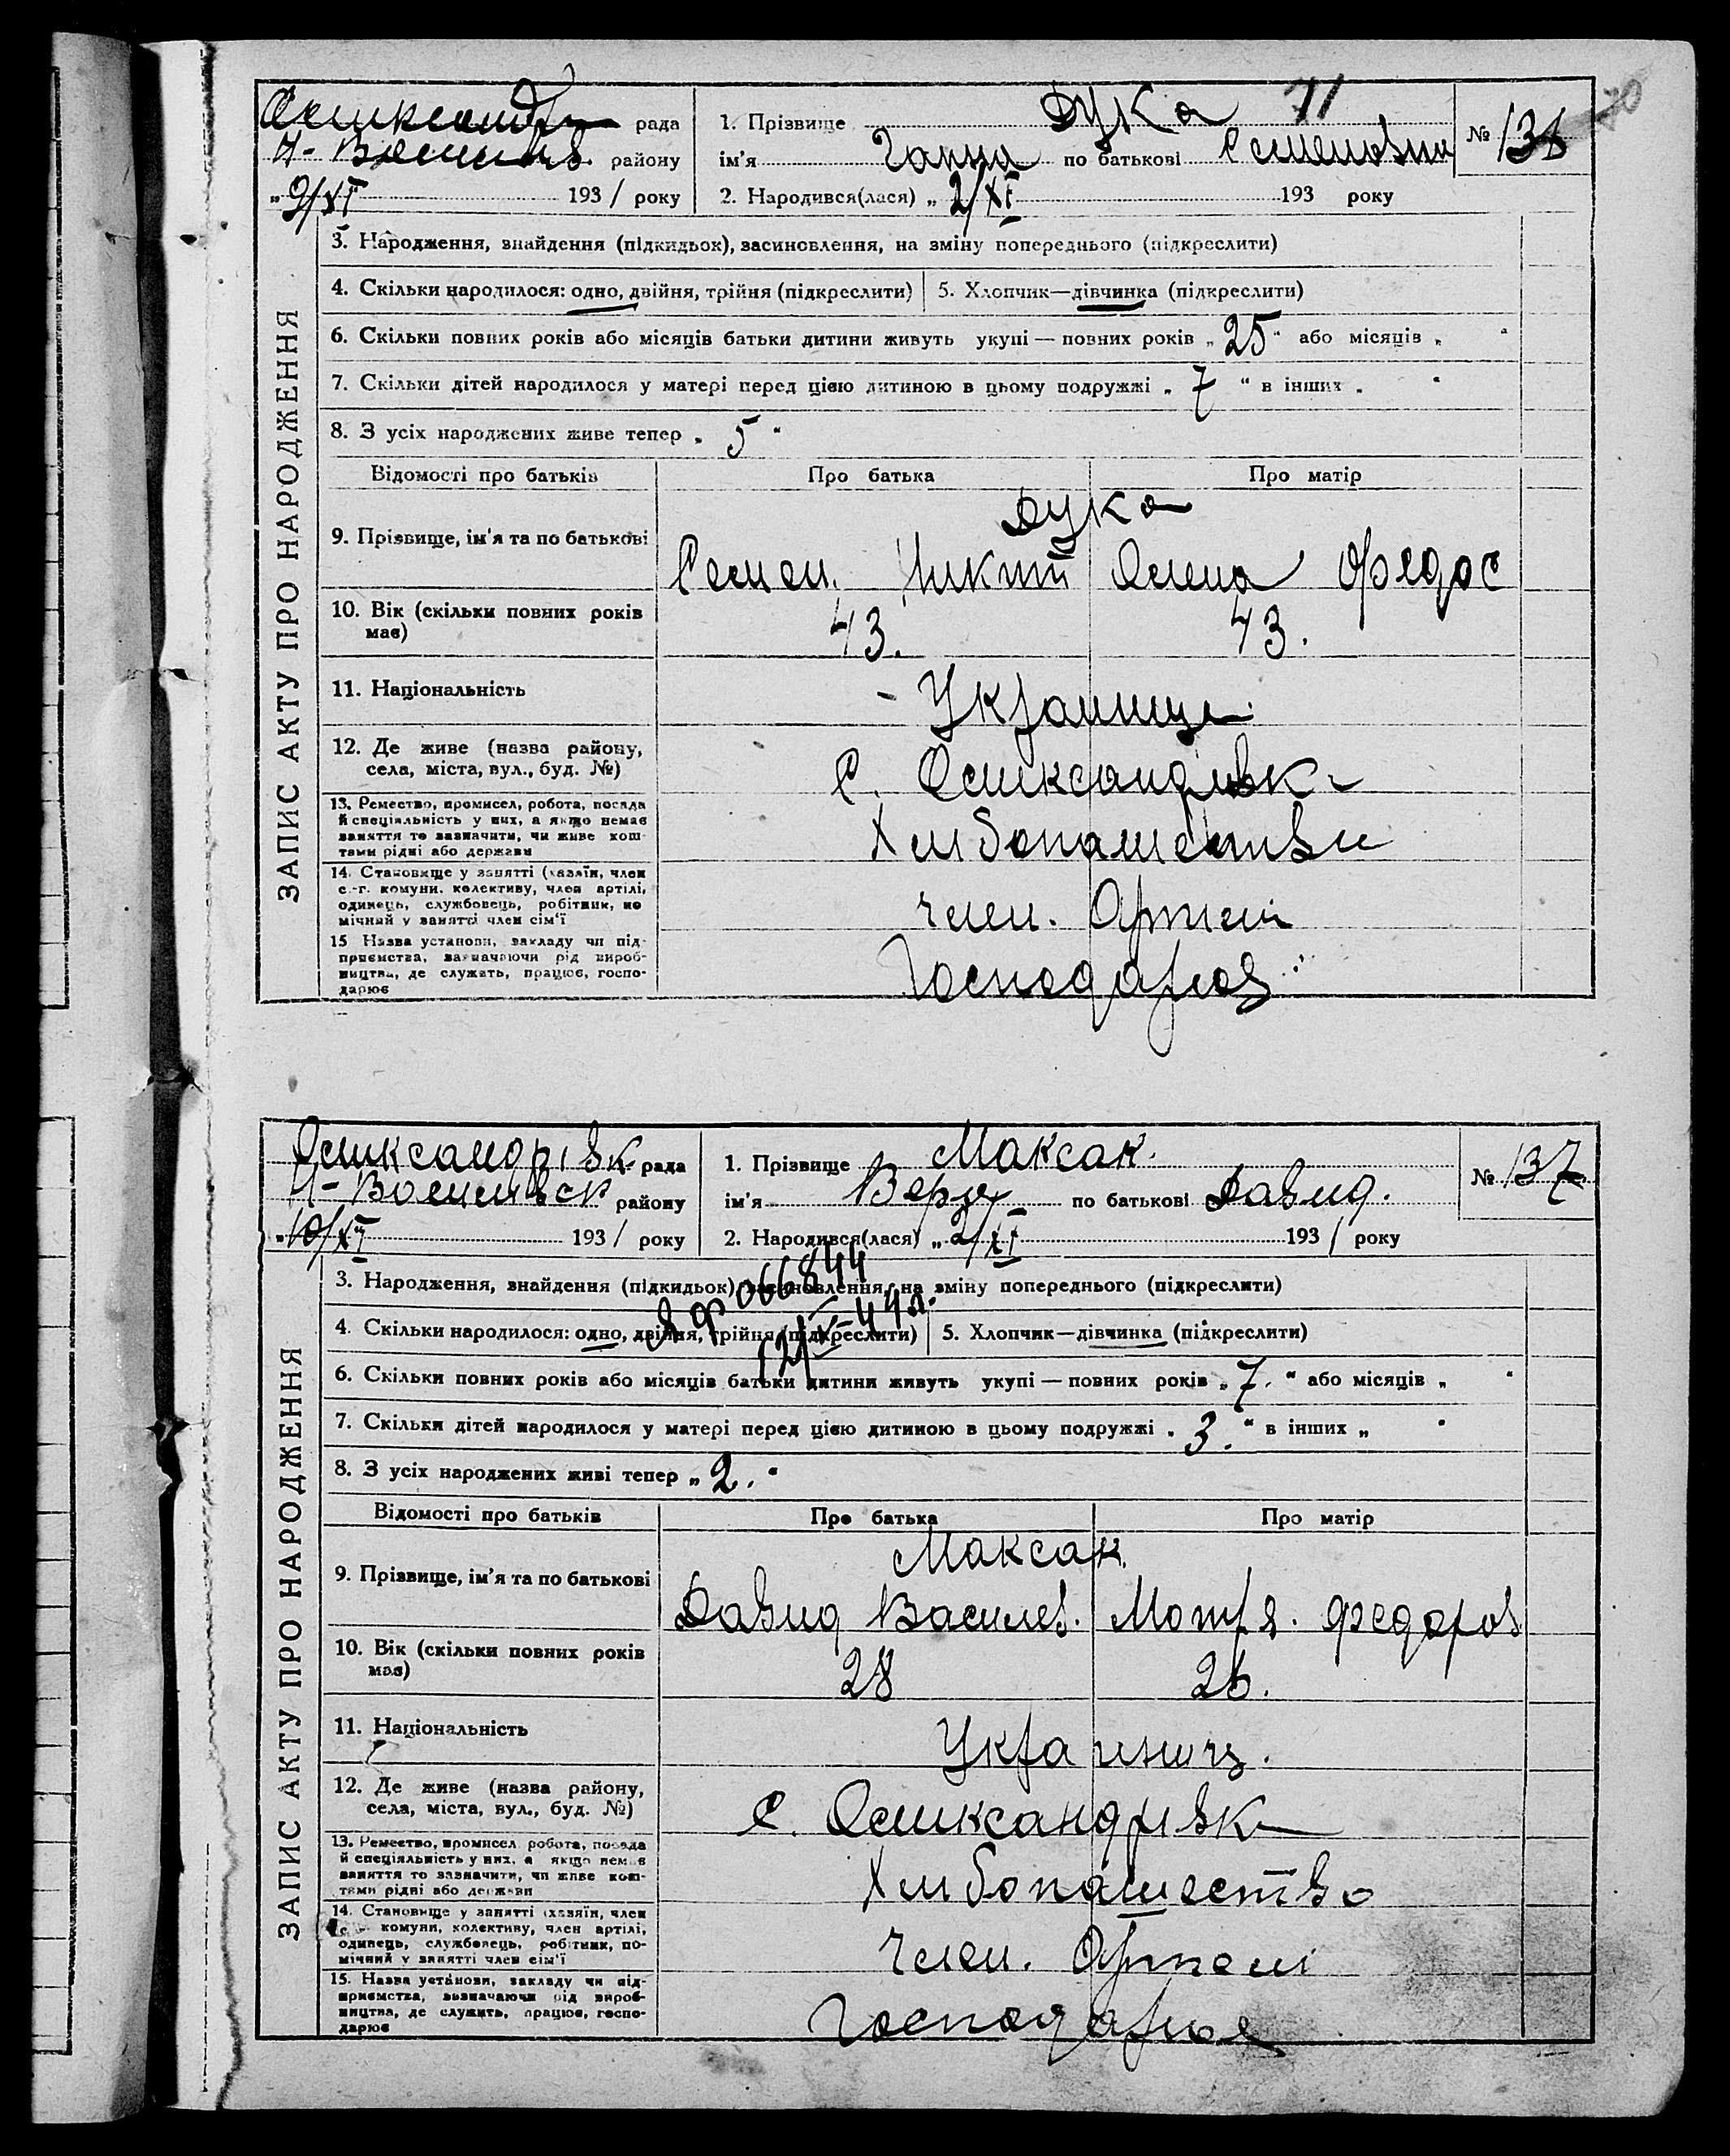 70
Олександрів рада
Н-Василів. району
„ 9/XI 193 1 року
1. Прізвище Дука 71
ім'я Ганна по батькові Семеновна
2. Народився(лася) „ 2/XI 193 року
№ 136
ЗАПИС АКТУ ПРО НАРОДЖЕННЯ
3. Народження, знайдення (підкидьок), засиновлення, на зміну попереднього (підкреслити)
4. Скільки народилося: одно, двійня, трійня (підкреслити) 5. Хлопчик—дівчинка (підкреслити)
6. Скільки повних років або місяців батьки дитини живуть укупі — повних років „ 25 “ або місяців „ “
7. Скільки дітей народилося у матері перед цією дитиною в цьому подружжі „ 7 “ в інших „ “
8. З усіх народжених живе тепер „ 5 “
Відомості про батьків Про батька Про матір
Дука
9. Прізвище, ім'я та по батькові Семен. Никит Олена Федос
10. Вік (скільки повних років має) 43. 43.
11. Національність Украинце
12. Де живе (назва району, села, міста, вул., буд. №) С. Олександрівка
13. Ремество, промисел, робота, посада
й спеціяльність у них, а якщо немає
заняття то зазначити, чи живе кош-
тами рідні або держави
Хлибопашество
14. Становище у занятті (хазяїн, член
с.-г. комуни, колективу, член артілі,
одинець, службовець, робітник, по
мічний у занятті член сім'ї
член. Артели
15 Назва установи, закладу чи під-
приємства, зазначаючи рід вироб-
ництва, де служить, працює, госпо-
дарює
Господарюв
Олександрівк рада
Н-Василівск району
„ 10/XI 193 1 року
1. Прізвище Максак.
ім'я Вера по батькові Давид.
2. Народився(лася) „ 2/XI 193 1 року
№ 137
ЗАПИС АКТУ ПРО НАРОДЖЕННЯ
3. Народження, знайдення (підкидьок), засиновлення, на зміну попереднього (підкреслити)
066844
4. Скільки народилося: одно, двійня, трійня (підкреслити) 5. Хлопчик—дівчинка (підкреслити)
6. Скільки повних років або місяців батьки дитини живуть укупі — повних років „ 7. “ або місяців „ “
7. Скільки дітей народилося у матері перед цією дитиною в цьому подружжі „ 3. “ в інших „ “
8. З усіх народжених живі тепер „ 2. “
Відомості про батьків Про батька Про матір
Максак
9. Прізвище, ім'я та по батькові Давид Василев. Мотря. Федоров
10. Вік (скільки повних років має) 28 26.
11. Національність Украинци.
12. Де живе (назва району, села, міста, вул., буд. №) С. Олександрівка
13. Ремество, промисел робота, посада
й спеціяльність у них, а якщо немає
заняття то зазначити, чи живе кош-
тами рідні або держави
Хлибопашество
14. Становище у занятті (хазяїн, член
с.-г. комуни, колективу, член артілі,
одинець, службовець, робітник, по-
мічний у занятті член сім'ї
член. Артели
15. Назва установи, закладу чи під-
приємства, зазначаючи рід вироб-
ництва, де служить, працює, госпо-
дарює
Господарюв